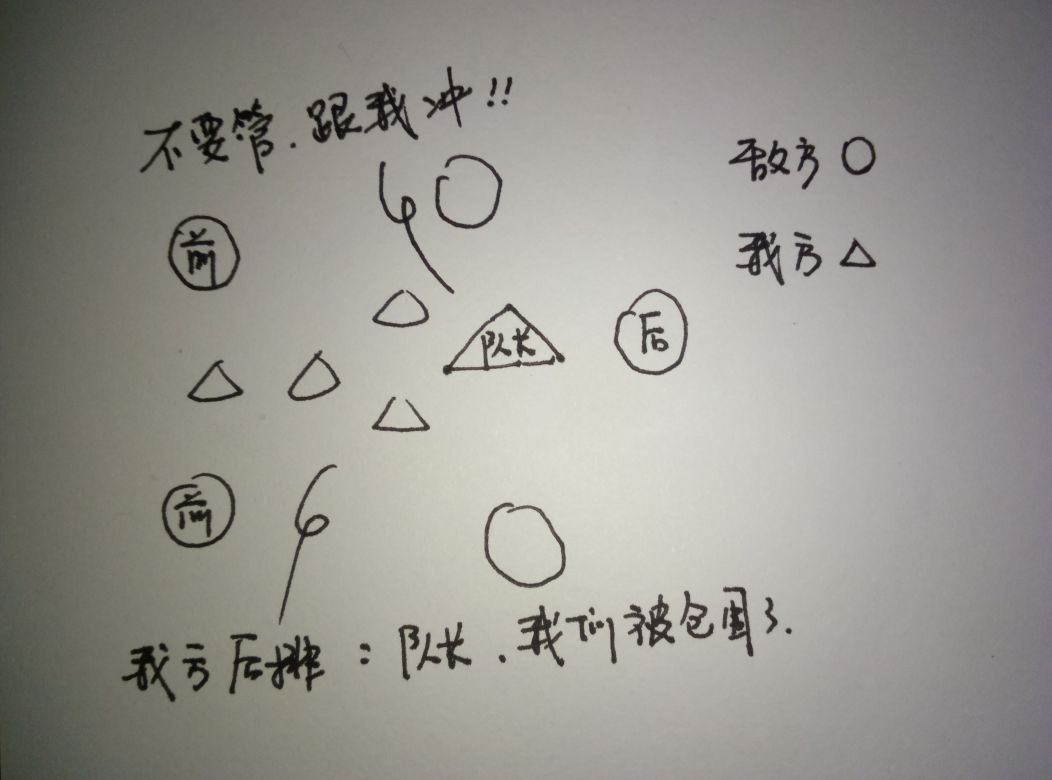 不要管.跟我冲!!
敌方 ○
我方 △
前
队长
后
前
我方后排:队长.我们被包围了.